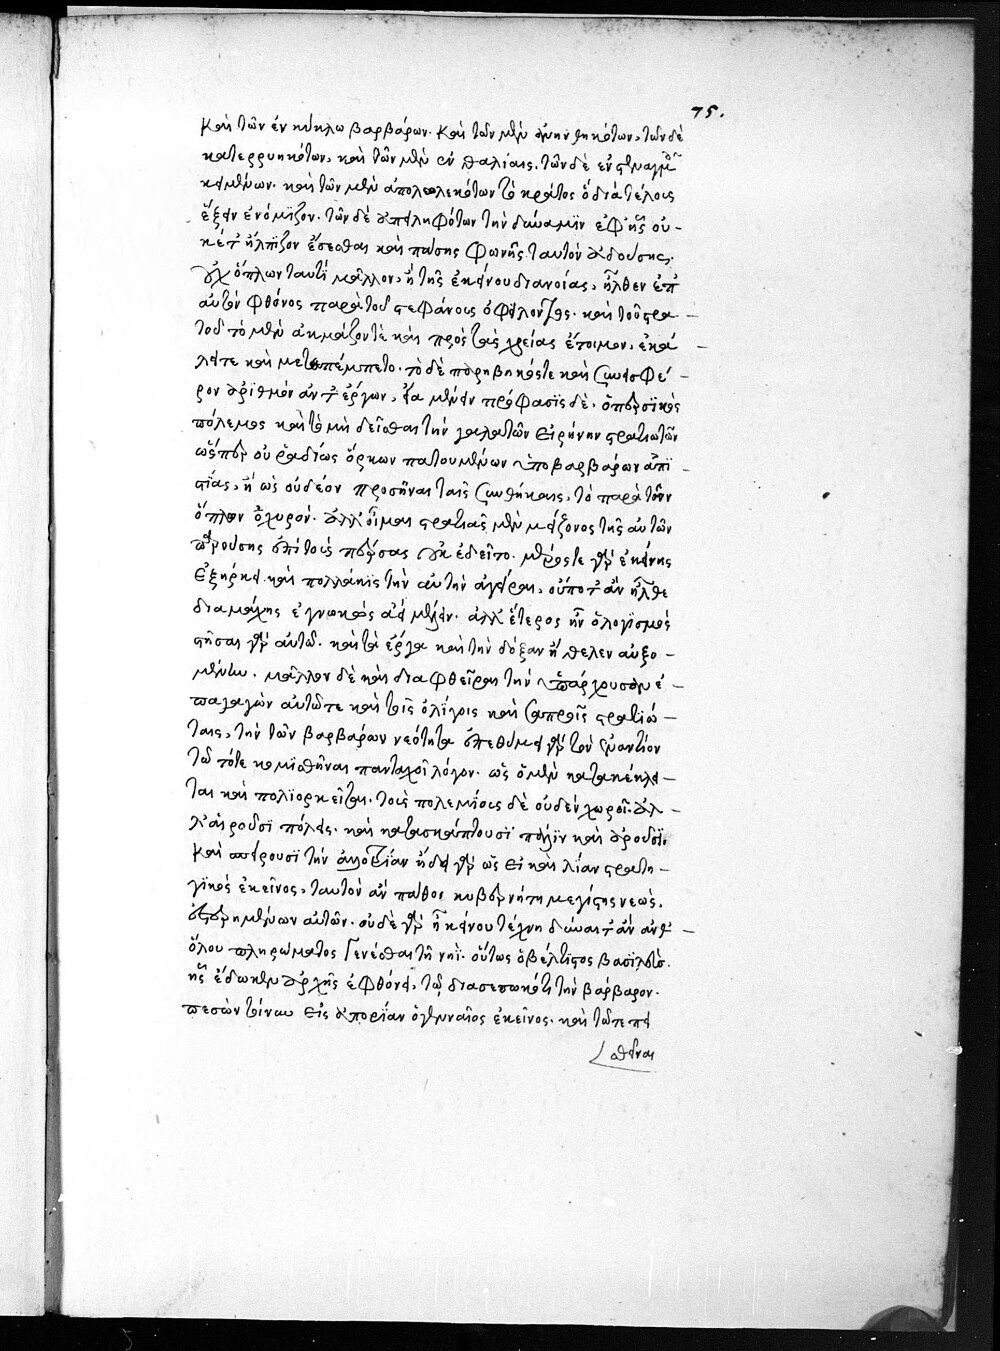 75.
καὶ τῶν ἐν κύκλω βαρβάρων. καὶ τῶν μὲν τῶν δὲ
κατερρυηκότων, καὶ τῶν μὲν ἐν θαλίαις, τῶν δὲ ἐν στεναγμοῖς
κειμένων. καὶ τῶν μὲν ἀπολωλεκότων τὸ κράτος ὃ διὰ τέλους
ἕξειν ἐνόμιζον. τῶν δὲ ἀπειληφότων τὴν δύναμϊν ἐφ' ἧς οὐ -
κέτ' ἤλπϊζον ἔσεσθαι καὶ πάσης φωνῆς ταυτὸν ἀδούσης,
οὐχ ὅπλων ταυτὶ μᾶλλον, ἢ τῆς ἐκείνου διανοίας, ἦλθεν ἐπ'
αὐτὸν φθόνος παρὰ τοῦ στεφάνους ὀφείλοντος. καὶ τοῦ στρα -
τοῦ τὸ μὲν ἀκμάζον τὲ καὶ πρὸς τὰς χρείας ἕτοιμον, ἐκά -
λει τε καὶ μετεπέμπετο. τὸ δὲ παρηβηκός τε καὶ συνεισφέ -
ρον ἀριθμὸν ἀντ' ἔργων, εἴα μένειν πρόφασϊς δὲ. ὁ περσϊκὸς
πόλεμος καὶ τὸ μὴ δεῖσθαι τὴν γαλατῶν εἰρήνην στρατιωτῶν
ὥσπερ οὐ ῥαδίως ὅρκων πατουμένων ὑπὸ βαρβάρων ἀπϊ -
στίας, ἢ ὡς οὐδέον προσῆναι ταῖς συνθήκαις, τὸ παρὰ τῶν
ὅπλων ὀχυρόν. ἀλλ' οἶμαι στρατιᾶς μὲν μείζονος τῆς αὐτῶν
φρουρούσης ἐπὶ τοὺς πέρσας οὐκ ἐδεῖτο. μέρος τε γὰρ ἐκείνης
ἐξήρκει. καὶ πολλάκϊς τὴν αὐτὴν ἀγείραι, οὔποτ' ἂν ἦλθε
διαμάχης ἐγνωκὼς ἀεὶ μέλλειν. ἀλλ' ἕτερος ἦν ὁ λογϊσμὸς
στῆσαι γὰρ αὐτῶ. καὶ τὰ ἔργα καὶ τὴν δόξαν ἤθελεν αὐξο -
μένην. μᾶλλον δὲ καὶ διαφθεῖραι τὴν ὑπάρχουσαν ἐ -
παγαγὼν αὐτῶ τε καὶ τοῖς ὀλίγοις καὶ σαπροῖς στρατιώ -
ταις, τὴν τῶν βαρβάρων νεότητα ἐπεθύμει γὰρ τὸν ἐναντίον
τῶ τότε κομϊσθῆναι πανταχοῖ λόγον. ὡς ὁ μὲν κατακέκλει -
ται καὶ πολϊορκεῖται. τοῖς πολεμίοις δὲ οὐδὲν χωρεῖ. ἀλ -
λ' αἱροῦσϊ πόλεις. καὶ κατασκάπτουσϊ πάλϊν καὶ ἀροῦσϊ.
καὶ σπείρουσϊ τὴν ἀλλοτρίαν ἤδει γὰρ ὡς εἰ καὶ λίαν στρατη -
γϊκὸς ἐκεῖνος, ταυτὸν ἂν πάθοι κυβερνήτη μεγίστης νεὼς.
ἐστερημένων αὐτῶν. οὐδὲ γὰρ ἡ ἐκείνου τέχνη δύναιτ' ἂν ἀνθ' -
ὅλου πληρώματος γενέσθαι τῆ νηΐ. οὕτως ὁ βέλτϊστος βασϊλεὺς
ἧς ἔδωκεν ἀρχῆς ἐφθόνει, τῶ διασεσωκότι τὴν βάρβαρον.
πεσὼν τοίνυν εἰς ἀπορίαν ὁ γενναῖος ἐκεῖνος. καὶ τῶ πεπει
σθῆναι